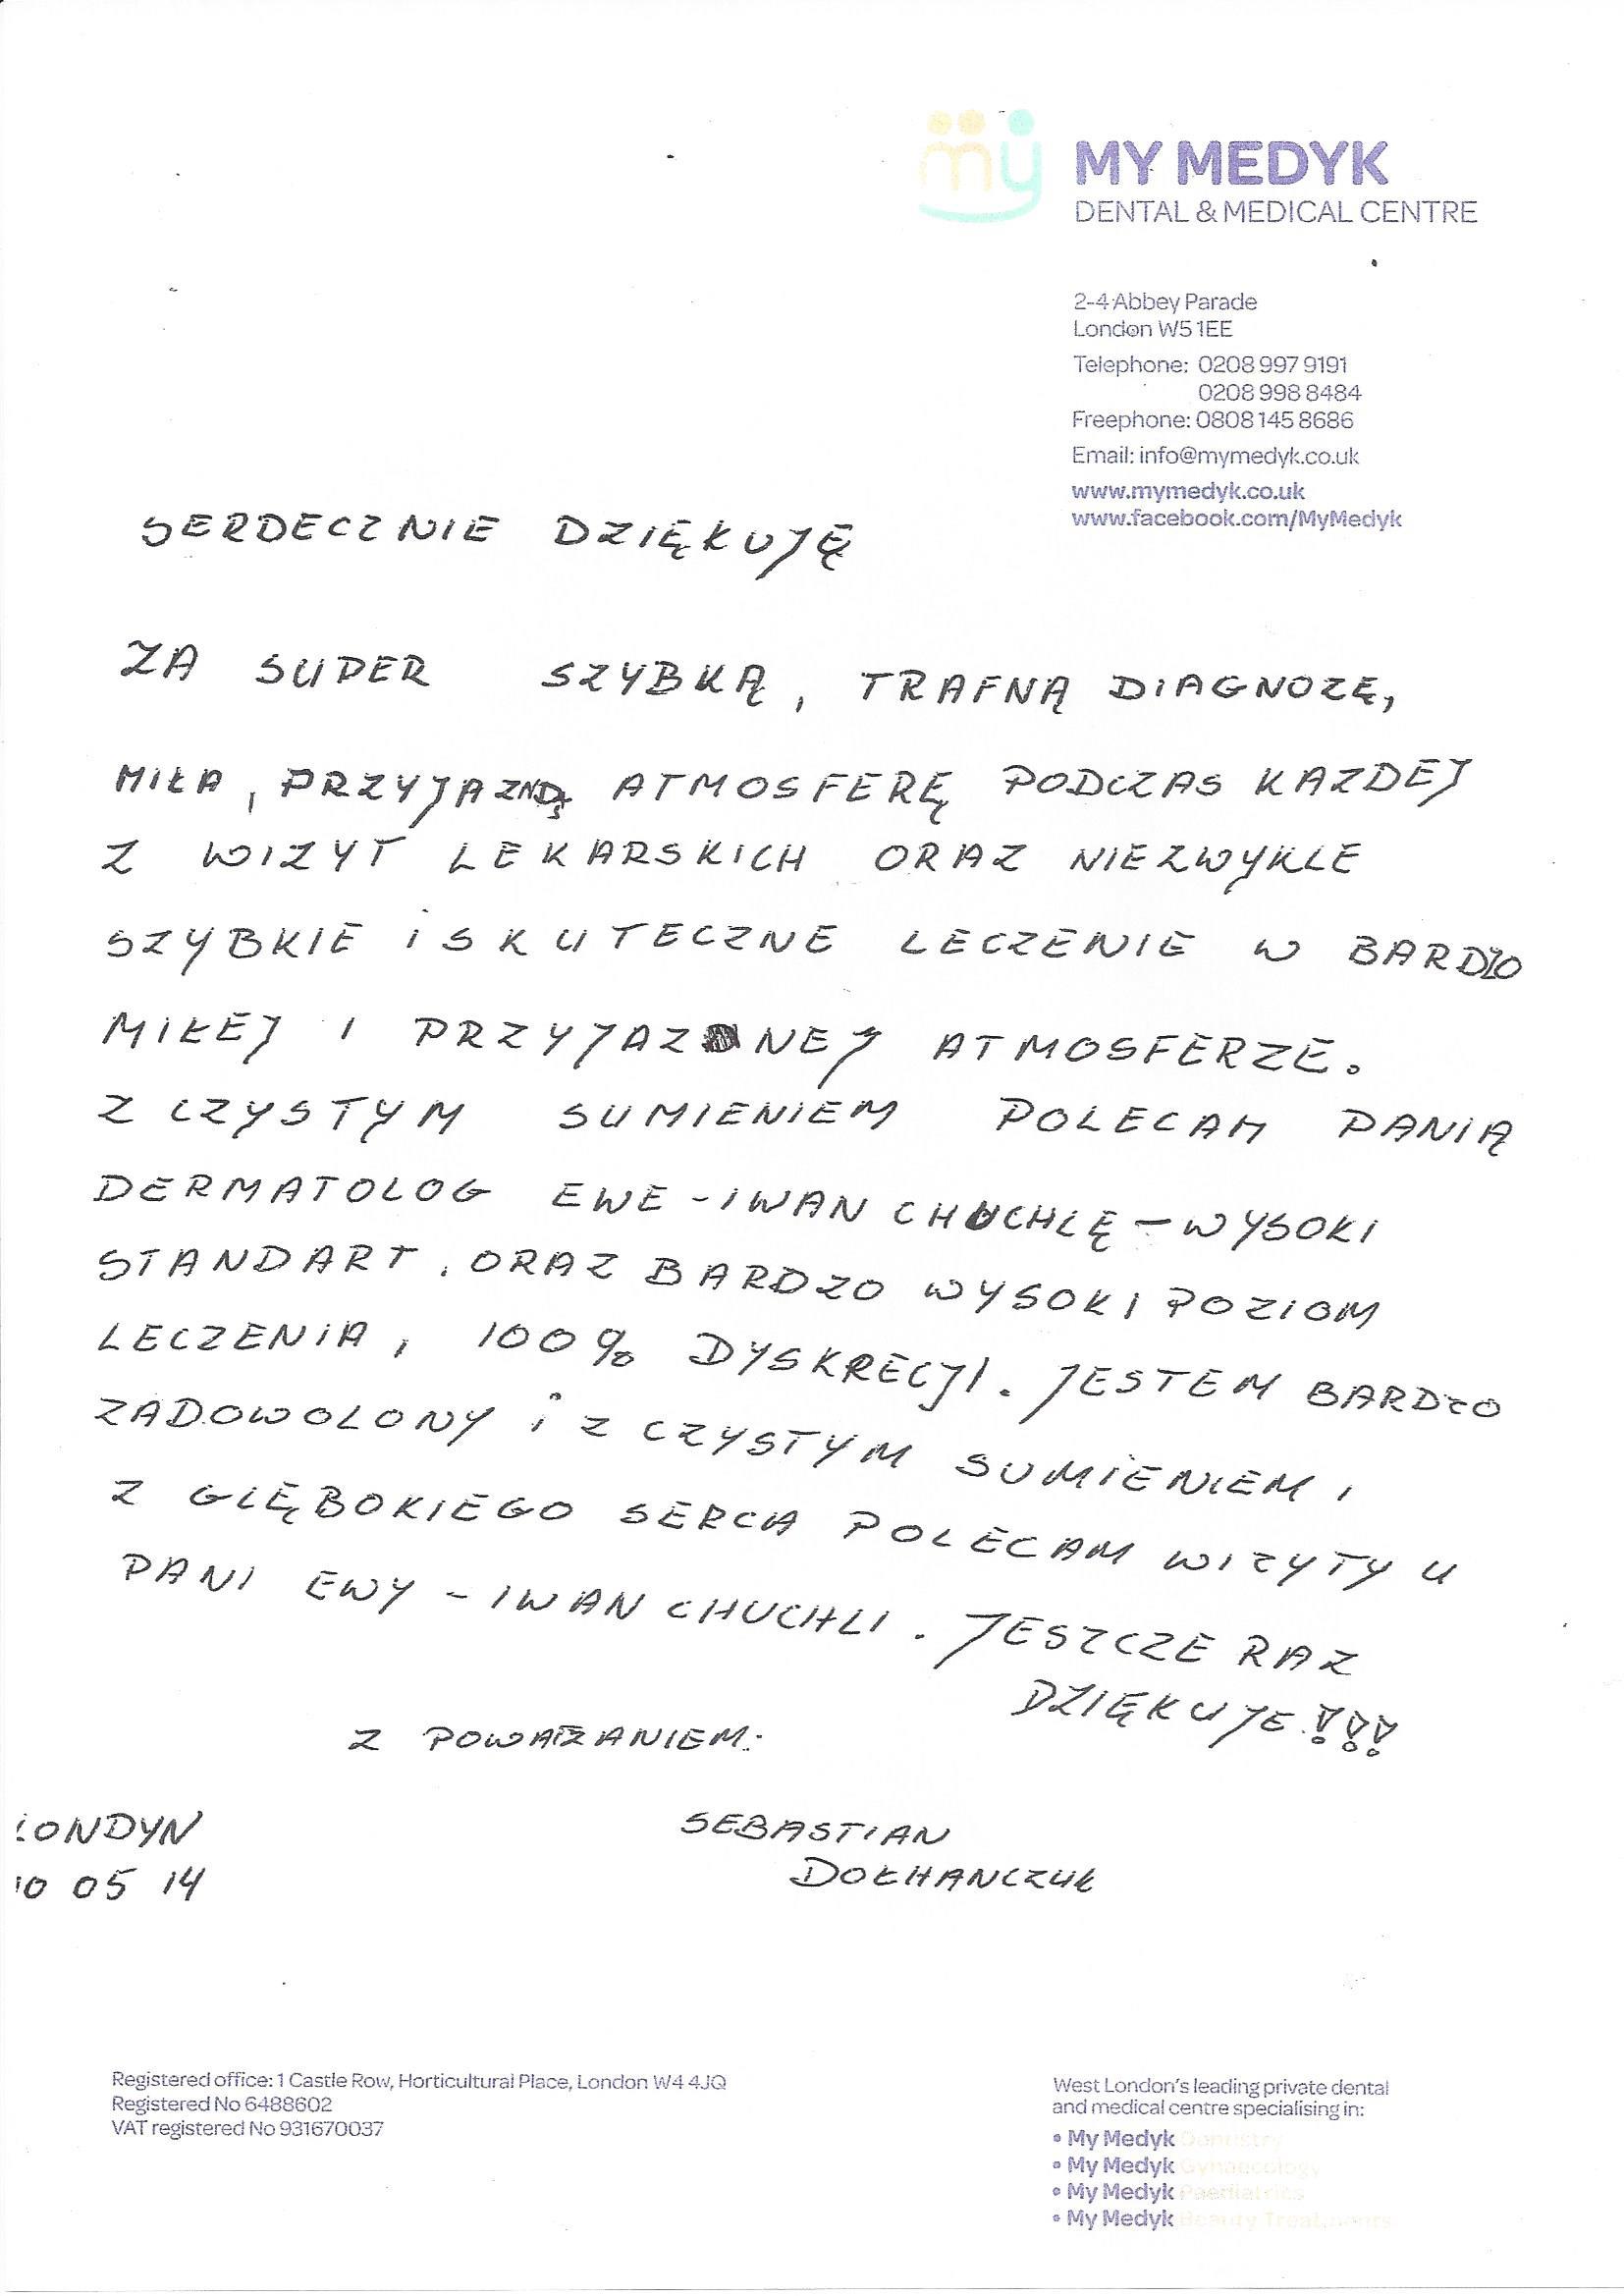 my MY MEDYK
DENTAL & MEDICAL CENTRE
2-4 Abbey Parade
London W5 1EE
Telephone: 0208 997 9191
0208 998 8484
Freephone: 0808 145 8686
Email: info@mymedyk.co.uk
www.mymedyk.co.uk
www.facebook.com/MyMedyk
SERDECZNIE DZIĘKUJĘ
ZA SUPER SZYBKĄ, TRAFNĄ DIAGNOZĘ,
MIŁA, PRZYJAZNĄ ATMOSFERĘ PODCZAS KAZDEJ
Z WIZYT LEKARSKICH ORAZ NIEZWYKLE
SZYBKIE i SKUTECZNE LECZENIE W BARDZO
MIŁEJ I PRZYJAZNEJ ATMOSFERZE.
Z CZYSTYM SUMIENIEM POLECAM PANIĄ
DERMATOLOG EWE-IWAN CHUCHLĘ - WYSOKI
STANDART, ORAZ BARDZO WYSOKI POZIOM
LECZENIA, 100% DYSKRECJI. JESTEM BARDZO
ZADOWOLONY i Z CZYSTYM SUMIENIEM I
Z GLĘBOKIEGO SERCA POLECAM WIZYTY U
PANI EWY - IWAN CHUCHLI. JESZCZE RAZ
DZIĘKUJE!!!
Z POWAŻANIEM:
LONDYN
10 05 14
SEBASTIAN
DOŁHANCZUK
Registered office: 1 Castle Row, Horticultural Place, London W4 4JQ
Registered No 6488602
VAT registered No 931670037
West London's leading private dental
and medical centre specialising in:
• My Medyk Dentistry
• My Medyk Gynaecology
• My Medyk Paediatrics
• My Medyk Beauty Treatments